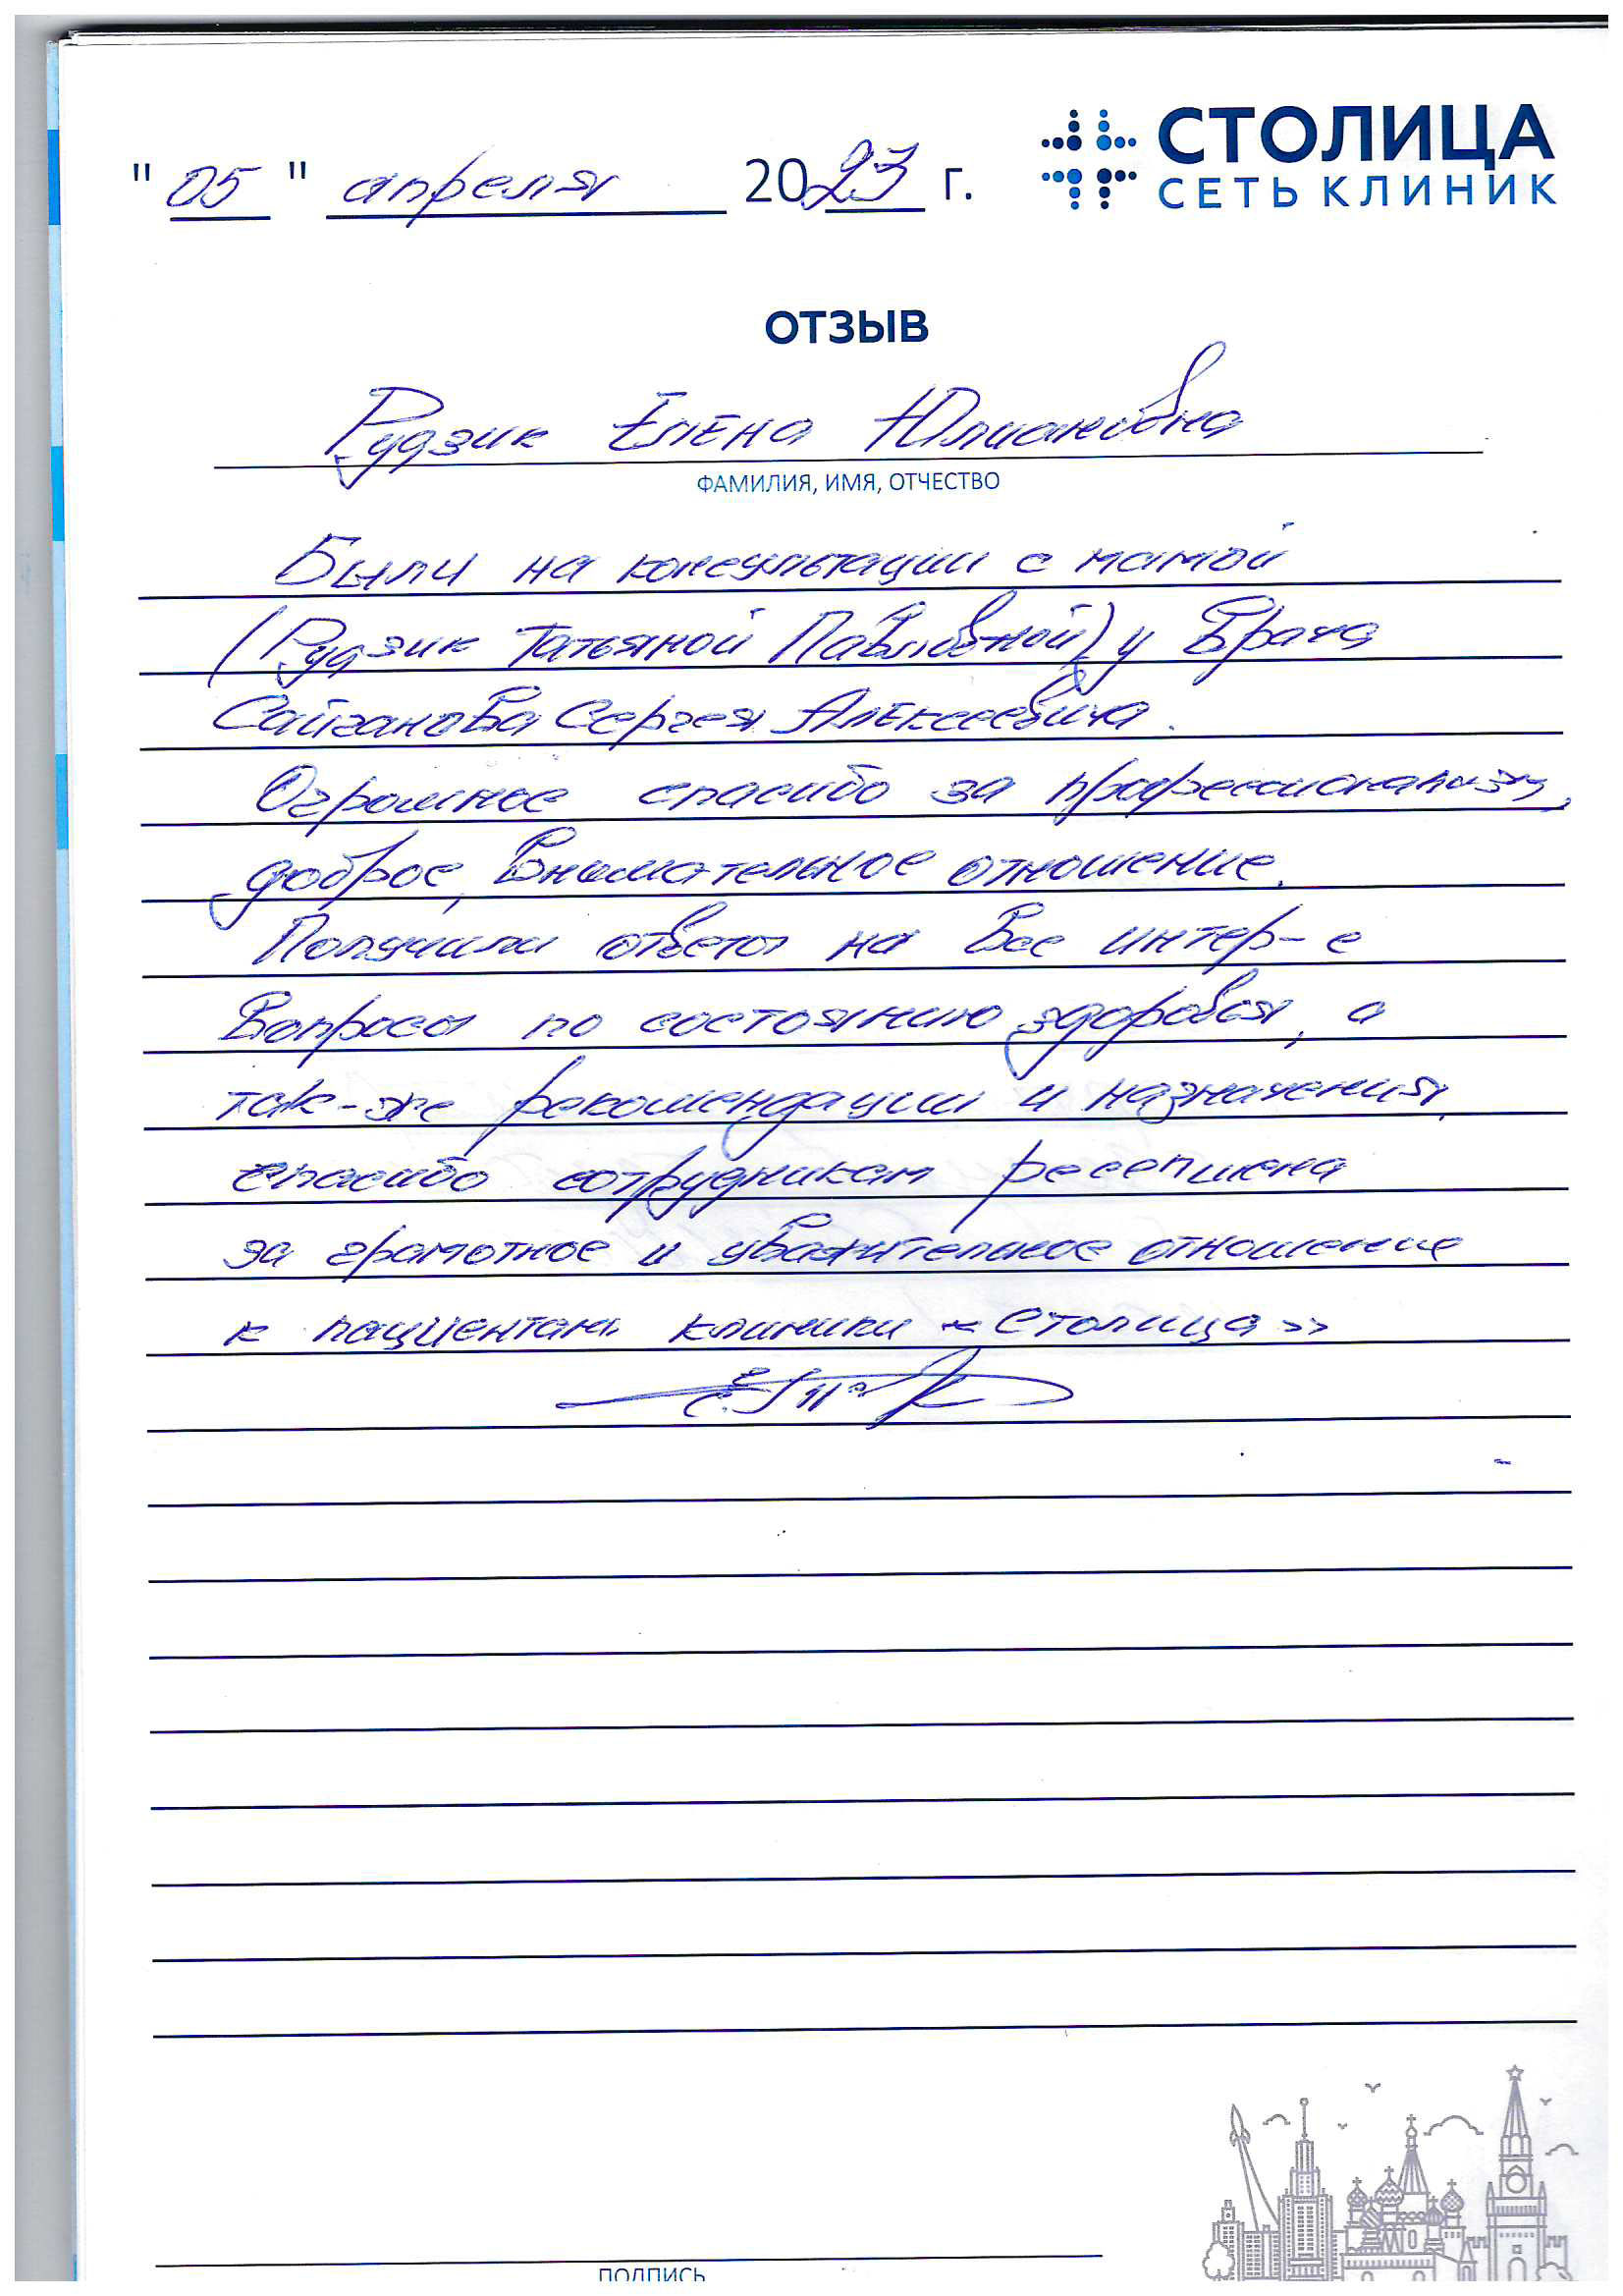 "05" апреля 2023 г.
СТОЛИЦА
СЕТЬ КЛИНИК
ОТЗЫВ
Рудзик Елена Юлиановна
ФАМИЛИЯ, ИМЯ, ОТЧЕСТВО
Были на консультации с мамой
(Рудзик Татьяной Павловной) у Врача
Сайганова Сергея Алексеевича.
Огромное спасибо за профессионализм,
доброе, внимательное отношение.
Получили ответы на все интер-е
вопросы по состоянию здоровья, а
так-же рекомендации и назначения.
спасибо сотрудникам ресепшена
за грамотное и уважительное отношение
к пациентам клиники «Столица»
ПОДПИСЬ